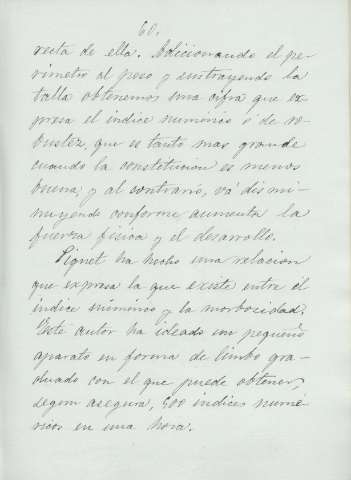 60.
recta de ella. Adicionando el pe-
rimetro al peso y sustrayendo la
talla obtenemos una cifra que ex-
presa el indice numérico ó de ro-
bustez, que es tanto mas grande
cuando la constitucion es menos
buena, y al contrario, vá dismi-
nuyendo conforme aumenta la
fuerza fisica y el desarrollo.
Pignet ha hecho una relacion
que expresa la que existe entre el
indice numérico y la morbosidad.
Este autor ha ideado un pequeño
aparato en forma de limbo gra-
duado con el que puede obtener,
segun asegura, 500 indices numé-
ricos en una hora.